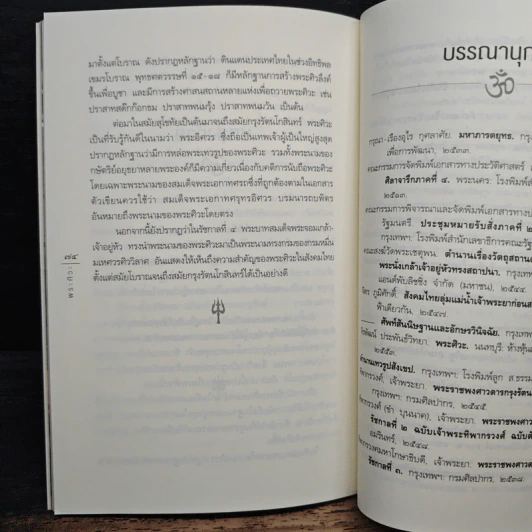 มาตั้งแต่โบราณ ดังปรากฏหลักฐานว่า ดินแดนประเทศไทยในช่วงอิทธิพล
เขมรโบราณ พุทธศตวรรษที่ ๑๕-๑๘ ก็มีหลักฐานการสร้างพระศิวลึงค์
ขึ้นเพื่อบูชา และมีการสร้างศาสนสถานหลายแห่งเพื่อถวายพระศิวะ เช่น
ปราสาทสด๊กก๊อกธม ปราสาทพนมรุ้ง ปราสาทพนมวัน เป็นต้น
ต่อมาในสมัยสุโขทัยเป็นต้นมาจนถึงสมัยกรุงรัตนโกสินทร์ พระศิวะ
เป็นที่รับรู้กันดีในนามว่า พระอิศวร ซึ่งถือเป็นเทพเจ้าผู้เป็นใหญ่สูงสุด
ปรากฏหลักฐานว่ามีการหล่อพระเทวรูปของพระศิวะ รวมทั้งพระนามของ
กษัตริย์อยุธยาหลายพระองค์ก็มีความเกี่ยวเนื่องกับคติการนับถือพระศิวะ
โดยเฉพาะพระนามของสมเด็จพระเอกาทศรถซึ่งที่ถูกต้องตามในเอกสาร
ตัวเขียนควรใช้ว่า สมเด็จพระเอกาทศรุทรอิศวร บรมนารถบพิตร
อันหมายถึงพระนามของพระศิวะโดยตรง
นอกจากนี้ยังปรากฏว่าในรัชกาลที่ ๔ พระบาทสมเด็จพระจอมเกล้า
เจ้าอยู่หัว ทรงนำพระนามของพระศิวะมาเป็นพระนามทรงกรมของกรมหมื่น
มเหศวรศิววิลาศ อันแสดงให้เห็นถึงความสำคัญของพระศิวะในสังคมไทย
ตั้งแต่สมัยโบราณจนถึงสมัยกรุงรัตนโกสินทร์ได้เป็นอย่างดี
๗๔
พระศิวะ
บรรณานุก
ॐ
กรุณา-เรืองอุไร กุศลาศัย. มหาภารตยุทธ. กรุ
เพื่อการพัฒนา, ๒๕๓๓.
คณะกรรมการจัดพิมพ์เอกสารทางประวัติศาสตร์
ศิลาจารึกภาคที่ ๔. พระนคร: โรงพิมพ์สำ
๒๕๑๓.
คณะกรรมการพิจารณาและจัดพิมพ์เอกสารทาง
รัฐมนตรี. ประชุมหมายรับสั่งภาคที่ ๒
กรุงเทพฯ: โรงพิมพ์สำนักเลขาธิการคณะรัฐ
คณะสงฆ์วัดพระเชตุพน. ตำนานเรื่องวัตถุสถาน
พระนั่งเกล้าเจ้าอยู่หัวทรงสถาปนา. กรุงเทพ
แอนด์พับลิชชิ่ง จำกัด (มหาชน), ๒๕๔๔.
จิตร ภูมิศักดิ์. สังคมไทยลุ่มแม่น้ำเจ้าพระยาก่อนส
ฟ้าเดียวกัน, ๒๕๔๗.
ศัพท์สันนิษฐานและอักษรวินิจฉัย. กรุงเท
ประพันธ์วิทยา. พระศิวะ. นนทบุรี: ห้างหุ้น
๒๕๕๓.
ตำนานเทวรูปสังเขป. กรุงเทพฯ: โรงพิมพ์ลูก ส.ธรรม
ทิพากรวงศ์, เจ้าพระยา. พระราชพงศาวดารกรุงรัตน
กรุงเทพฯ: กรมศิลปากร, ๒๕๔๕
ทิพากรวงศ์ (ขำ บุนนาค), เจ้าพระยา. พระราชพงศาวด
รัชกาลที่ ๒ ฉบับเจ้าพระยาทิพากรวงศ์ ฉบับตั
อมรินทร์, ๒๕๔๘.
ทิพากรวงศมหาโกษาธิบดี, เจ้าพระยา. พระราชพงศาว
รัชกาลที่ ๓. กรุงเทพฯ: กรมศิลปากร, ๒๕๓๘.